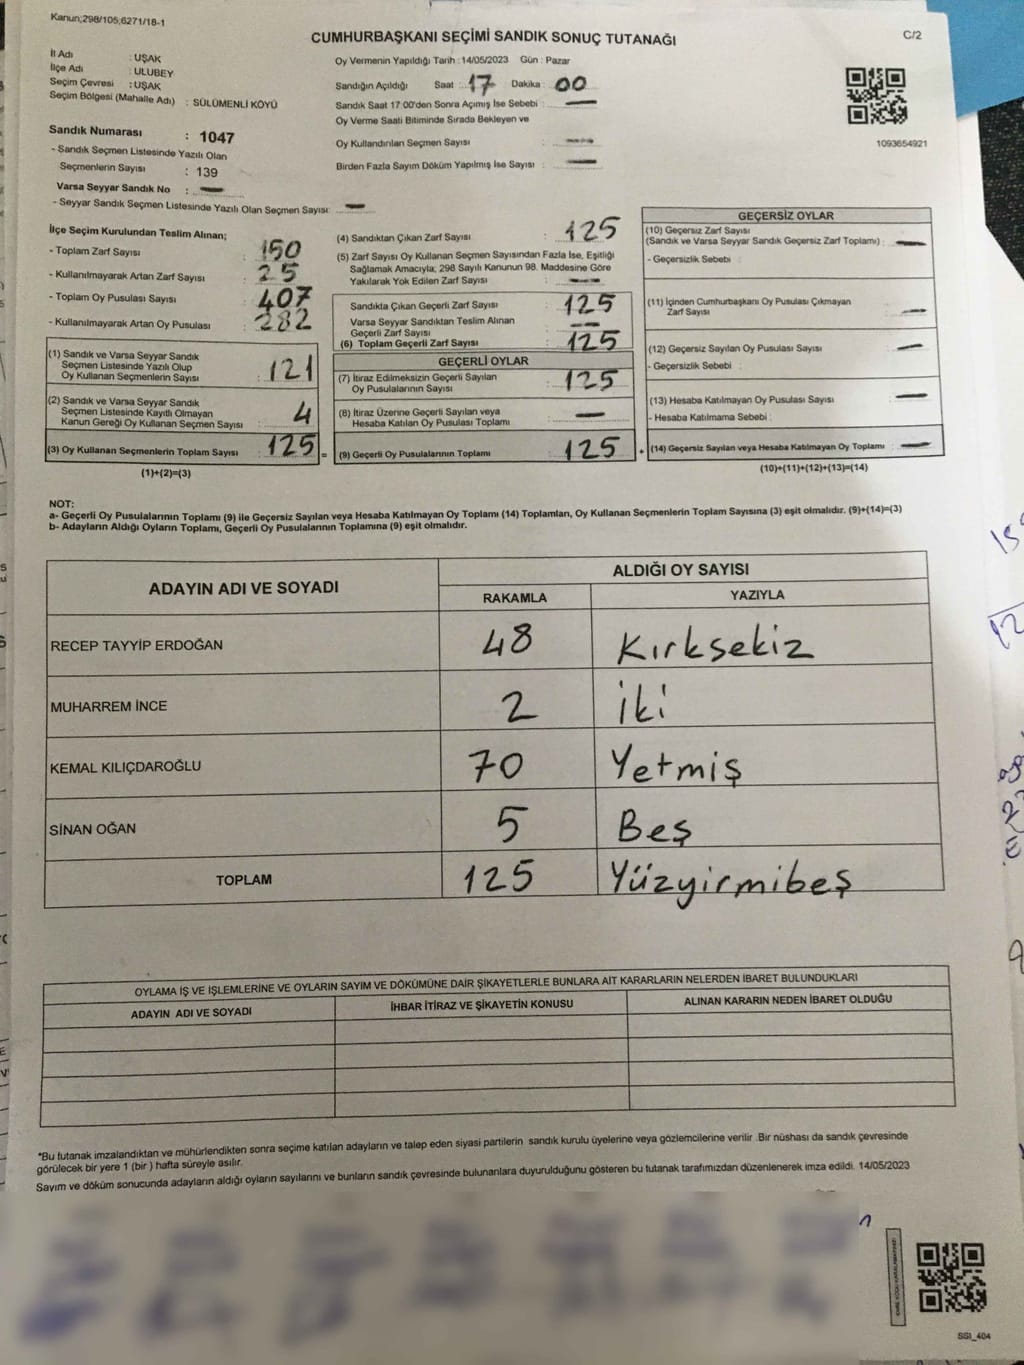 Kanun;298/105;6271/18-1
CUMHURBAŞKANI SEÇİMİ SANDIK SONUÇ TUTANAĞI
C/2
İl Adı : UŞAK
İlçe Adı : ULUBEY
Seçim Çevresi : UŞAK
Seçim Bölgesi (Mahalle Adı) : SÜLÜMENLİ KÖYÜ
Oy Vermenin Yapıldığı Tarih : 14/05/2023 Gün : Pazar
Sandığın Açıldığı Saat : 17 Dakika : 00
Sandık Saat 17:00'den Sonra Açımış İse Sebebi : —
Oy Verme Saati Bitiminde Sırada Bekleyen ve
Oy Kullandırılan Seçmen Sayısı : —
Birden Fazla Sayım Döküm Yapılmış İse Sayısı : —
1093654921
Sandık Numarası : 1047
- Sandık Seçmen Listesinde Yazılı Olan
Seçmenlerin Sayısı : 139
Varsa Seyyar Sandık No : —
- Seyyar Sandık Seçmen Listesinde Yazılı Olan Seçmen Sayısı: —
İlçe Seçim Kurulundan Teslim Alınan;
- Toplam Zarf Sayısı : 150
- Kullanılmayarak Artan Zarf Sayısı : 25
- Toplam Oy Pusulası Sayısı : 407
- Kullanılmayarak Artan Oy Pusulası : 282
(1) Sandık ve Varsa Seyyar Sandık
Seçmen Listesinde Yazılı Olup
Oy Kullanan Seçmenlerin Sayısı : 121
(2) Sandık ve Varsa Seyyar Sandık
Seçmen Listesinde Kayıtlı Olmayan
Kanun Gereği Oy Kullanan Seçmen Sayısı : 4
(3) Oy Kullanan Seçmenlerin Toplam Sayısı : 125 =
(1)+(2)=(3)
(4) Sandıktan Çıkan Zarf Sayısı : 125
(5) Zarf Sayısı Oy Kullanan Seçmen Sayısından Fazla İse, Eşitliği
Sağlamak Amacıyla, 298 Sayılı Kanunun 98. Maddesine Göre
Yakılarak Yok Edilen Zarf Sayısı : —
Sandıkta Çıkan Geçerli Zarf Sayısı : 125
Varsa Seyyar Sandıktan Teslim Alınan
Geçerli Zarf Sayısı : —
(6) Toplam Geçerli Zarf Sayısı : 125
GEÇERLİ OYLAR
(7) İtiraz Edilmeksizin Geçerli Sayılan
Oy Pusulalarının Sayısı : 125
(8) İtiraz Üzerine Geçerli Sayılan veya
Hesaba Katılan Oy Pusulası Toplamı : —
(9) Geçerli Oy Pusulalarının Toplamı : 125 +
GEÇERSİZ OYLAR
(10) Geçersiz Zarf Sayısı
(Sandık ve Varsa Seyyar Sandık Geçersiz Zarf Toplamı) : —
- Geçersizlik Sebebi :
(11) İçinden Cumhurbaşkanı Oy Pusulası Çıkmayan
Zarf Sayısı : —
(12) Geçersiz Sayılan Oy Pusulası Sayısı : —
- Geçersizlik Sebebi :
(13) Hesaba Katılmayan Oy Pusulası Sayısı : —
- Hesaba Katılmama Sebebi :
(14) Geçersiz Sayılan veya Hesaba Katılmayan Oy Toplamı : —
(10)+(11)+(12)+(13)=(14)
NOT:
a- Geçerli Oy Pusulalarının Toplamı (9) ile Geçersiz Sayılan veya Hesaba Katılmayan Oy Toplamı (14) Toplamları, Oy Kullanan Seçmenlerin Toplam Sayısına (3) eşit olmalıdır. (9)+(14)=(3)
b- Adayların Aldığı Oyların Toplamı, Geçerli Oy Pusulalarının Toplamına (9) eşit olmalıdır.
ADAYIN ADI VE SOYADI ALDIĞI OY SAYISI
RAKAMLA YAZIYLA
RECEP TAYYİP ERDOĞAN 48 Kırksekiz
MUHARREM İNCE 2 İki
KEMAL KILIÇDAROĞLU 70 Yetmiş
SİNAN OĞAN 5 Beş
TOPLAM 125 Yüzyirmibeş
OYLAMA İŞ VE İŞLEMLERİNE VE OYLARIN SAYIM VE DÖKÜMÜNE DAİR ŞİKAYETLERLE BUNLARA AİT KARARLARIN NELERDEN İBARET BULUNDUKLARI
ADAYIN ADI VE SOYADI İHBAR İTİRAZ VE ŞİKAYETİN KONUSU ALINAN KARARIN NEDEN İBARET OLDUĞU
*Bu tutanak imzalandıktan ve mühürlendikten sonra seçime katılan adayların ve talep eden siyasi partilerin sandık kurulu üyelerine veya gözlemcilerine verilir .Bir nüshası da sandık çevresinde
görülecek bir yere 1 (bir ) hafta süreyle asılır.
Sayım ve döküm sonucunda adayların aldığı oyların sayılarını ve bunların sandık çevresinde bulunanlara duyurulduğunu gösteren bu tutanak tarafımızdan düzenlenerek imza edildi. 14/05/2023
SSI_404